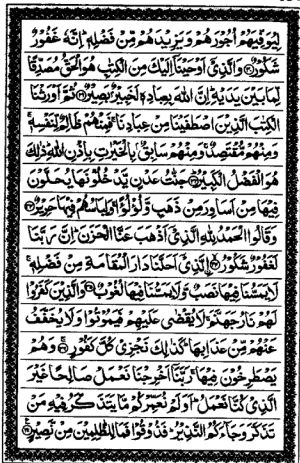 لِيُوَفِّيَهُمْ أُجُورَهُمْ وَيَزِيدَهُمْ مِّنْ فَضْلِهٖ ؕ اِنَّهٗ غَفُوْرٌ
شَكُوْرٌ ﴿۳۰﴾ وَالَّذِيْٓ اَوْحَيْنَآ اِلَيْكَ مِنَ الْكِتٰبِ هُوَ الْحَقُّ مُصَدِّقًا
لِّمَا بَيْنَ يَدَيْهِ ؕ اِنَّ اللّٰهَ بِعِبَادِهٖ لَخَبِيْرٌۢ بَصِيْرٌ ﴿۳۱﴾ ثُمَّ اَوْرَثْنَا
الْكِتٰبَ الَّذِيْنَ اصْطَفَيْنَا مِنْ عِبَادِنَا ۚ فَمِنْهُمْ ظَالِمٌ لِّنَفْسِهٖ ۚ
وَمِنْهُمْ مُّقْتَصِدٌ ۚ وَمِنْهُمْ سَابِقٌۢ بِالْخَيْرٰتِ بِاِذْنِ اللّٰهِ ؕ ذٰلِكَ
هُوَ الْفَضْلُ الْكَبِيْرُ ﴿۳۲﴾ جَنّٰتُ عَدْنٍ يَّدْخُلُوْنَهَا يُحَلَّوْنَ
فِيْهَا مِنْ اَسَاوِرَ مِنْ ذَهَبٍ وَّلُؤْلُؤًا ۚ وَلِبَاسُهُمْ فِيْهَا حَرِيْرٌ ﴿۳۳﴾
وَقَالُوا الْحَمْدُ لِلّٰهِ الَّذِيْٓ اَذْهَبَ عَنَّا الْحَزَنَ ؕ اِنَّ رَبَّنَا
لَغَفُوْرٌ شَكُوْرُ ﴿۳۴﴾ الَّذِيْٓ اَحَلَّنَا دَارَ الْمُقَامَةِ مِنْ فَضْلِهٖ ۚ
لَا يَمَسُّنَا فِيْهَا نَصَبٌ وَّلَا يَمَسُّنَا فِيْهَا لُغُوْبٌ ﴿۳۵﴾ وَالَّذِيْنَ كَفَرُوْا
لَهُمْ نَارُ جَهَنَّمَ ۚ لَا يُقْضٰى عَلَيْهِمْ فَيَمُوْتُوْا وَلَا يُخَفَّفُ
عَنْهُمْ مِّنْ عَذَابِهَا ؕ كَذٰلِكَ نَجْزِيْ كُلَّ كَفُوْرٍ ﴿۳۶﴾ وَهُمْ
يَصْطَرِخُوْنَ فِيْهَا ۚ رَبَّنَآ اَخْرِجْنَا نَعْمَلْ صَالِحًا غَيْرَ
الَّذِيْ كُنَّا نَعْمَلُ ؕ اَوَلَمْ نُعَمِّرْكُمْ مَّا يَتَذَكَّرُ فِيْهِ مَنْ
تَذَكَّرَ وَجَآءَكُمُ النَّذِيْرُ ؕ فَذُوْقُوْا فَمَا لِلظّٰلِمِيْنَ مِنْ نَّصِيْرٍ ﴿۳۷﴾